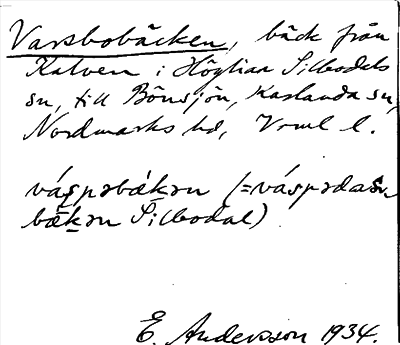 Varsbobäcken, bäck från
Kalven i Höglian Silbodals
sn, till Bönsjön, Karlanda sn,
Nordmarks hd, Vrml l.
(= Silbodal)
E. Andersson 1934.